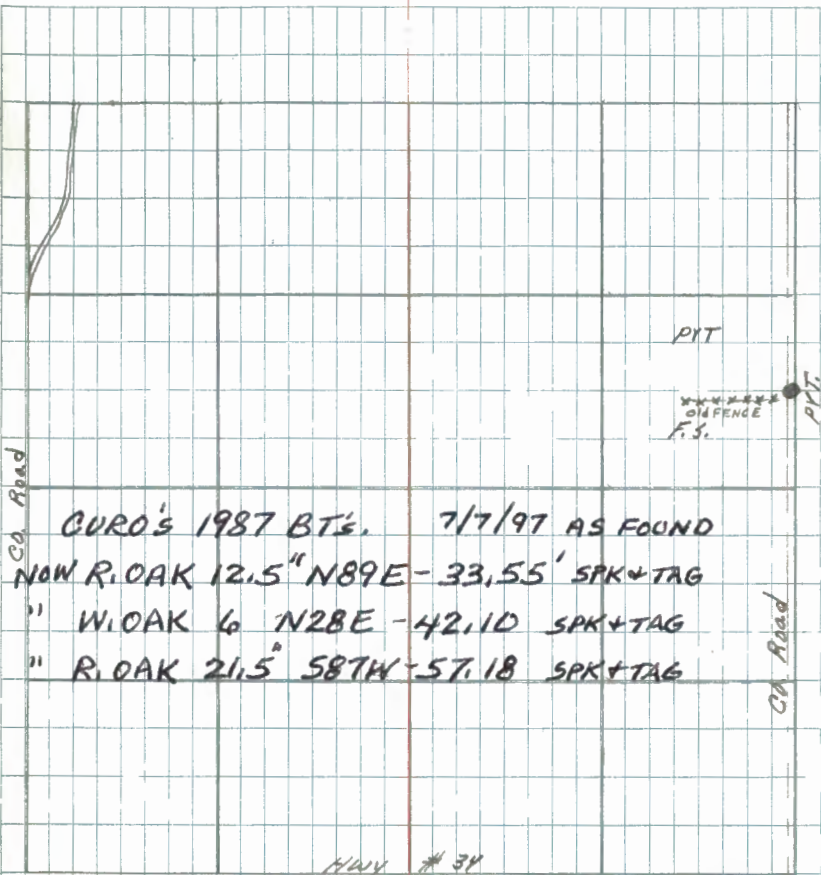 PVT
OLD FENCE
F.S.
PVT.
CO. Road
CURO'S 1987 BT'S. 7/7/97 AS FOUND
NOW R. OAK 12.5" N89E - 33.55' SPK & TAG
" W. OAK 6 N28E - 42.10 SPK & TAG
" R. OAK 21.5" S87W - 57.18 SPK & TAG
CO. Road
HWY # 34